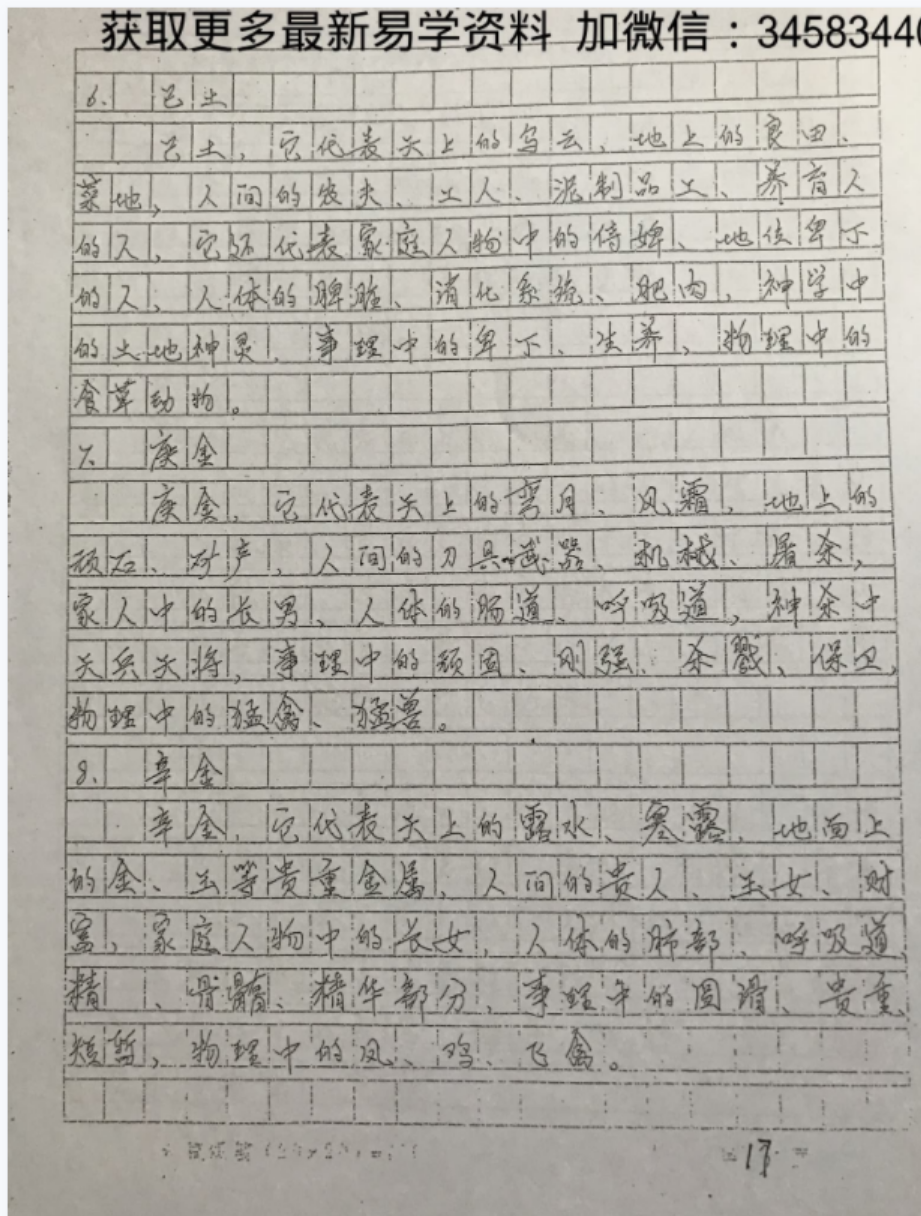 获取更多最新易学资料 加微信：3458344
6. 己土
己土，它代表天上的乌云、地上的良田、
菜地，人间的农夫、工人、泥制品工、养育人
的人，它还代表家庭人物中的侍婢、地位卑下
的人，人体的脾脏、消化系统、肥肉，神学中
的土地神灵，事理中的卑下、生养，物理中的
食草动物。
7. 庚金
庚金，它代表天上的弯月、风霜，地上的
顽石、矿产，人间的刀具武器、机械、屠杀，
家人中的长男、人体的肠道、呼吸道，神杀中
天兵天将，事理中的顽固、刚强、杀戮、保卫，
物理中的猛禽、猛兽。
8. 辛金
辛金，它代表天上的露水、寒露，地面上
的金、玉等贵重金属，人间的贵人、玉女、财
富，家庭人物中的长女，人体的肺部、呼吸道
精、骨髓、精华部分，事理中的圆滑、贵重、
短暂，物理中的凤、鸡、飞禽。
17